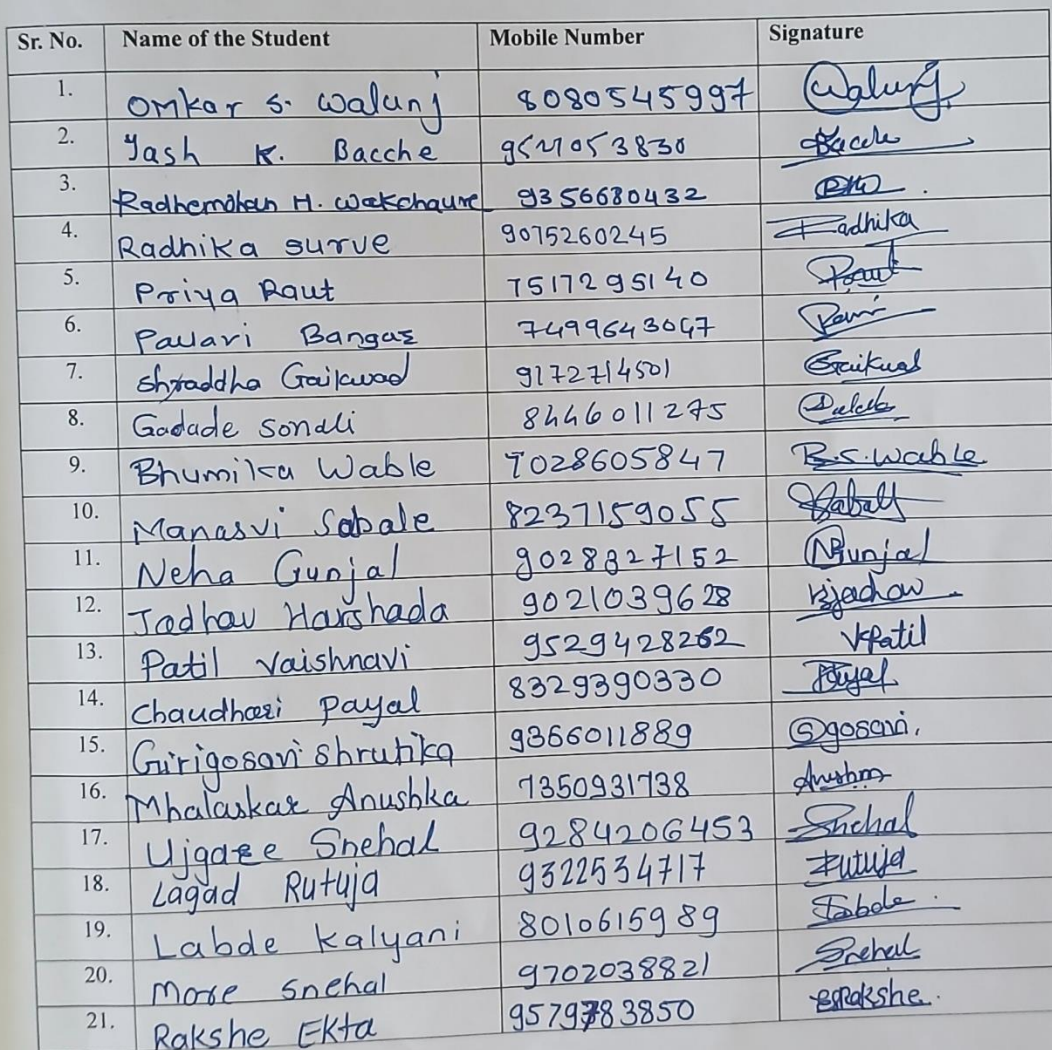 Sr. No. Name of the Student Mobile Number Signature
1. Omkar S. Walunj 8080545997 Walunj
2. Yash K. Bacche 9527053830 Bacche
3. Radhemohan H. Wakchaure 9356680432
4. Radhika Surve 9075260245 Radhika
5. Priya Raut 7517295140 Raut
6. Pallavi Bangar 7499643047
7. Shraddha Gaikwad 9172714501 Gaikwad
8. Gadade Sonali 8446011275
9. Bhumika Wable 7028605847 B.S.Wable
10. Manasvi Sabale 8237159055
11. Neha Gunjal 9028827152 NGunjal
12. Jadhav Harshada 9021039628
13. Patil Vaishnavi 9529428262 VPatil
14. Chaudhari Payal 8329390330 Payal
15. Girigosavi Shrutika 9366011889 Sgosavi.
16. Mhalaskar Anushka 7350931738
17. Ujgare Snehal 9284206453 Snehal
18. Lagad Rutuja 9322534717 Rutuja
19. Labde Kalyani 8010615989 Labde
20. More Snehal 9702038821 Snehal
21. Rakshe Ekta 9579783850